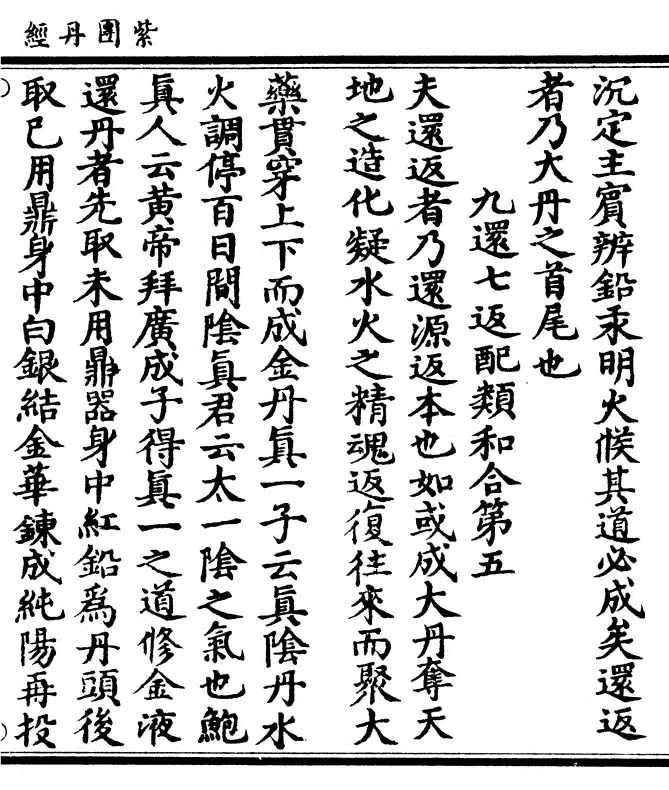 紫團丹經
沉定主賓辨鉛汞明火候其道必成矣還返
者乃大丹之首尾也
九還七返配類和合第五
夫還返者乃還源返本也如或成大丹奪天
地之造化凝水火之精魂返復往來而聚大
藥貫穿上下而成金丹眞一子云眞陰丹水
火調停百日間陰眞君云太一陰之氣也鮑
眞人云黃帝拜廣成子得眞一之道修金液
還丹者先取未用鼎器身中紅鉛爲丹頭後
取已用鼎身中白銀結金華鍊成純陽再投